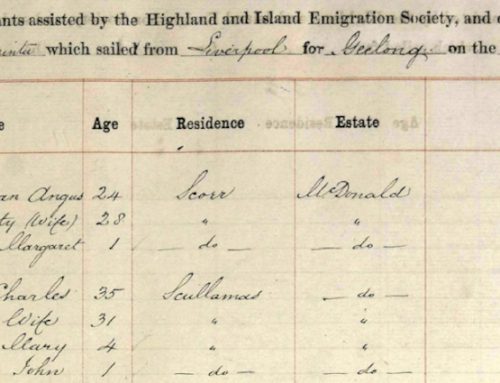 ants assisted by the Highland and Island Emigration Society, and
which sailed from Liverpool for Geelong on the
e Age Residence Estate
an Angus 24 Scorr McDonald
ty (Wife) 28 " "
Margaret 1 — do — — do —
Charles 35 Scullamas — do —
Wife 31 " "
Mary 4 " "
John 1 — do — — do —